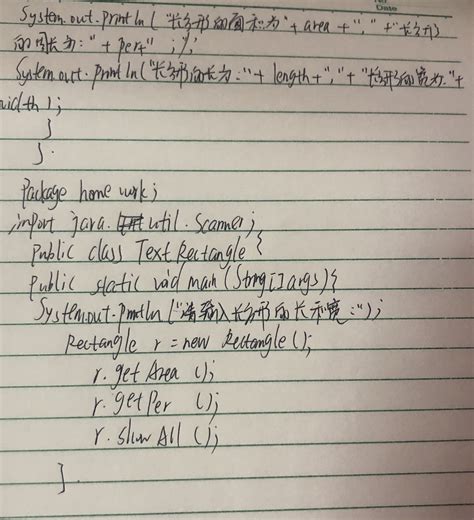 System.out.println("长方形的面积为"+area+","+"长方形
的周长为:"+per+" ;");
System.out.println("长方形的长为:"+length+","+"长方形的宽为:"+
width);
}
}.
Package homework;
import java.util.Scanner;
Public class TextRectangle {
Public static void main(String[]args){
System.out.println("请输入长方形的长和宽:");
Rectangle r=new Rectangle();
r.getArea();
r.getPer();
r.showAll();
}.